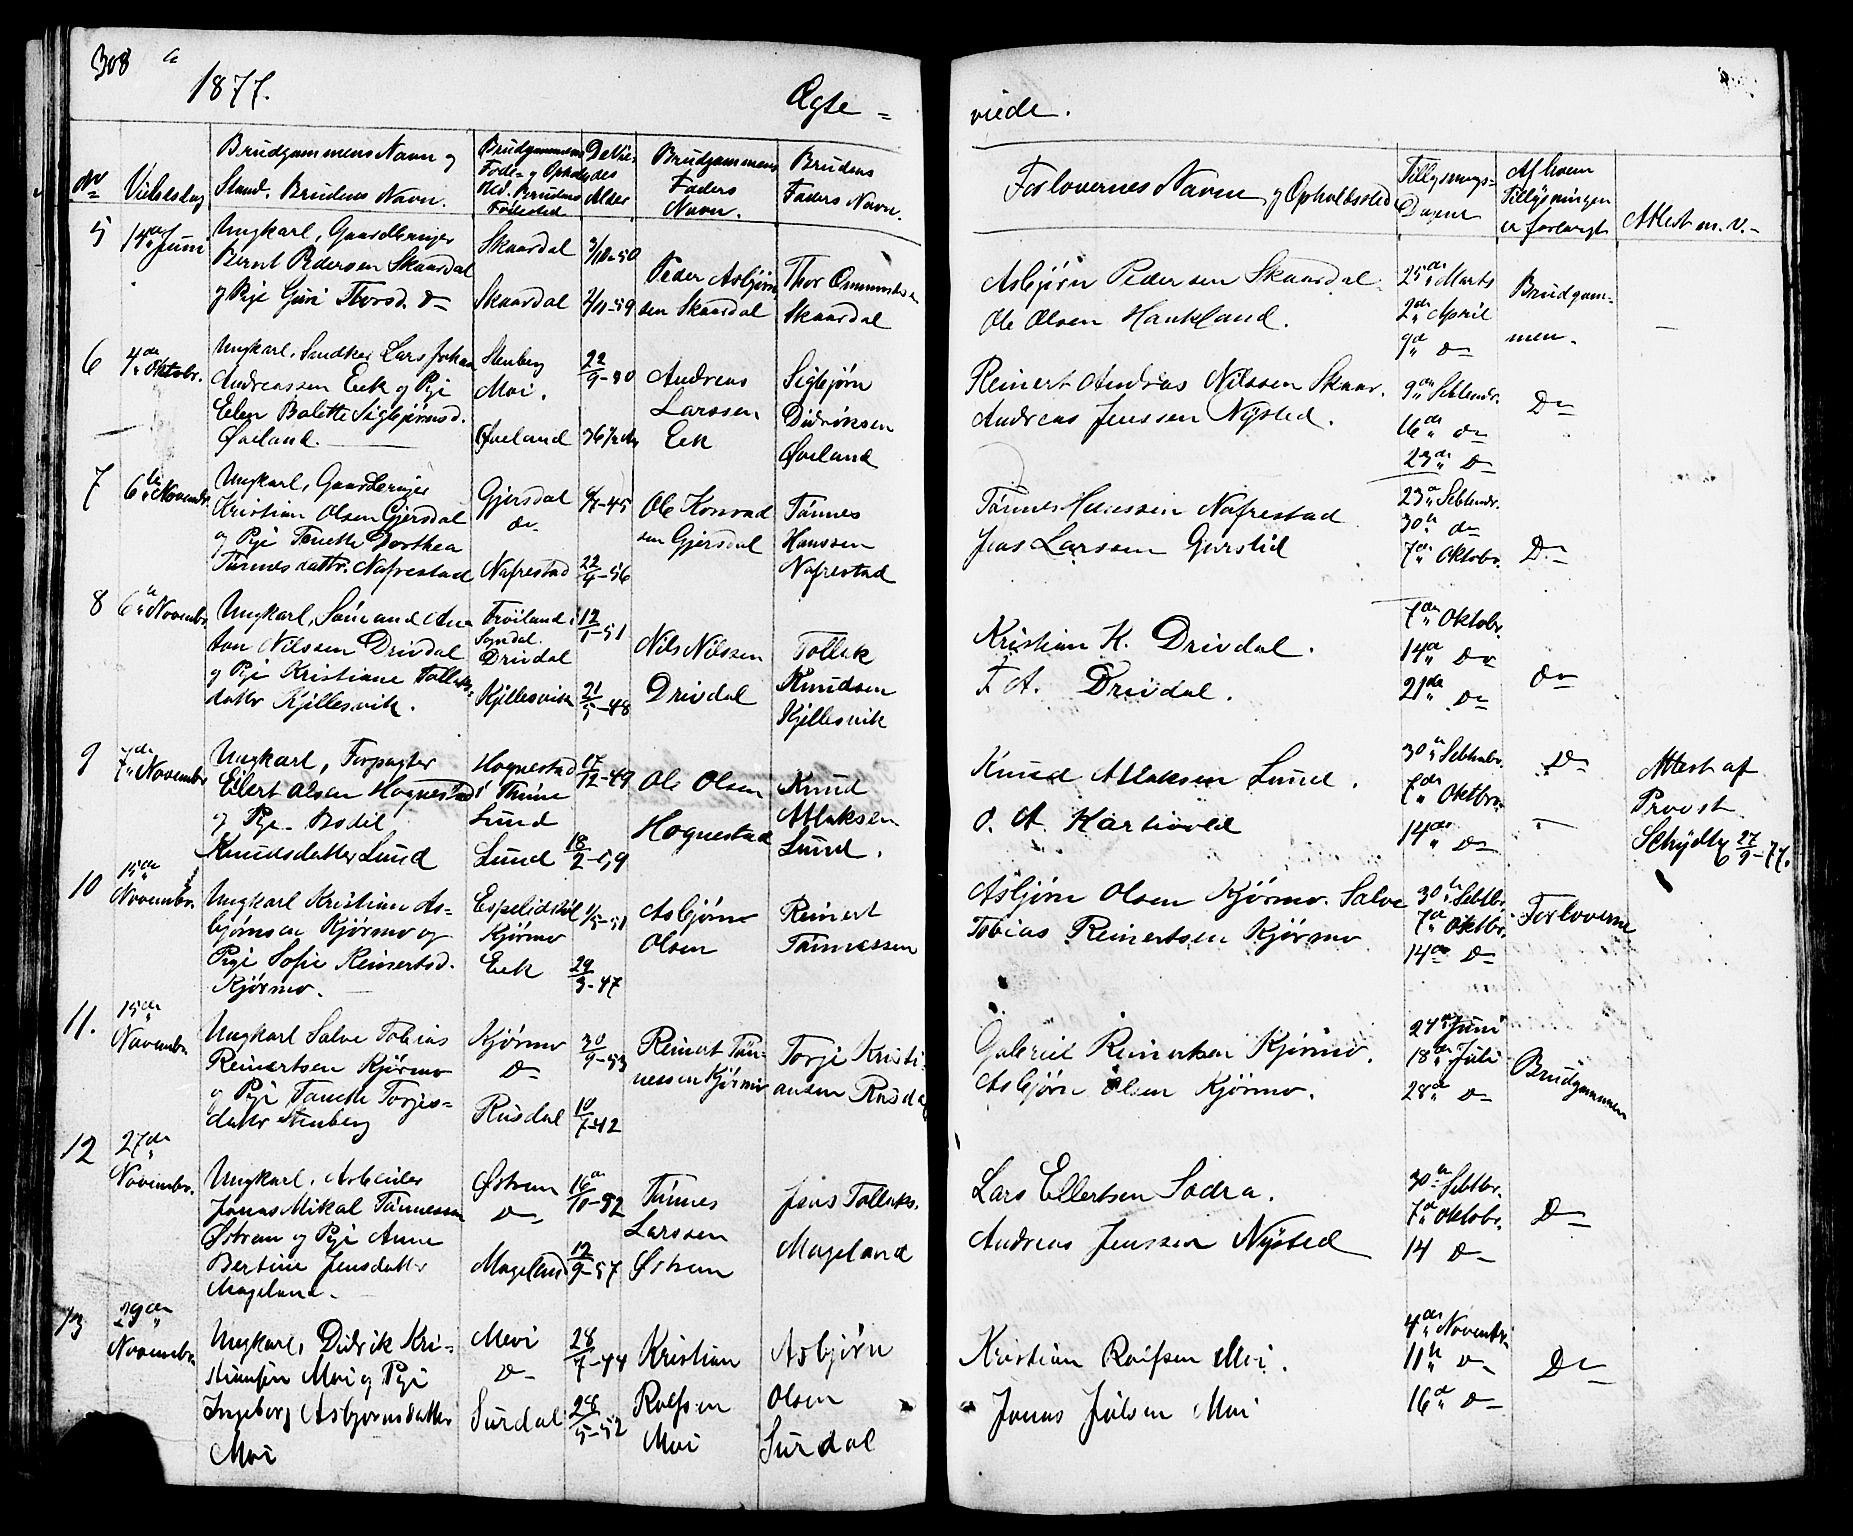 308 a
1877.
Ægte = viede.
No
Vielsesdag
Brudgommens Navn og
Stand. Brudens Navn.
Brudgommens
Føde- og Opholds
sted. Brudens
Fødested
De Vie-
des
Alder
Brudgommens
Faders
Navn.
Brudens
Faders Navn.
Forlovernes Navne og Opholdssted
Tillysnings-
Dagene
Af hvem
Tillysningen
er forlangt
Attest m. v. -
5
14de Juni
Ungkarl, Gaardbruger
Bernt Pedersen Skaardal
og Pige Guri Thorsd. do
Skaardal
Skaardal
3/10-50
2/11-59
Peder Asbjørn
sen Skaardal
Thor Ommundsen
Skaardal
Asbjørn Pedersen Skaardal.
Ole Olsen Haukland.
25de Marts
2de April
9d do
Brudgom-
men.
6
4de Oktobr.
Ungkarl, Snedker Lars Johan
Andreassen Eek og Pige
Elen Bolette Sigbjørnsd.
Øveland.
Stenberg
Moi.
Øveland
22/9-30
36 1/2 Aar
Andreas
Larssen
Eek
Sigbjørn
Didriksen
Øveland
Reinert Andreas Nilssen Skaar.
Andreas Jenssen Nysted.
9de Septembr.
16de do
23de do
Do
7
6te Novembr.
Ungkarl, Gaardbruger
Kristian Olsen Gjersdal
og Pige Tonette Dorthea
Tønnesdattr. Nafrestad
Gjersdal
do
Nafrestad
22/4-56
Ole Konrad
sen Gjersdal
Tønnes
Hanssen
Nafrestad
Tønnes Hanssen Nafrestad
Jens Larssen Gjersdal
23de Septembr.
30te do
7de Oktobr.
Do
8
6te Novembr.
Ungkarl, Søren and An
ton Nilssen Drivdal
og Pige Kristiane Tollaks-
dattr Kjellesvik.
Frøiland i
Sogndal.
Drivdal
Kjellesvik
12/1-51
21/5-48
Nils Nilssen
Drivdal
Tollak
Knudsen
Kjellesvik
Kristian K. Drivdal.
T. A. Drivdal.
7de Oktobr.
14de do
21de do
do
9
7de Novembr
Ungkarl, Forpagter
Eilert Olsen Hognestad
og Pige Bodil
Knudsdatter Lund
Hognestad
i Thime
Lund
Lund
17/12-49
18/2-59
Ole Olsen
Hognestad
Knud
Atlaksen
Lund.
Knud Atlaksen Lund.
O. A. Hartvold
30te Septembr.
7de Oktbr.
14de do
Do
Attest af
Provst
Schydtz 27/9-77.
10
15de
Novembr.
Ungkarl Kristian As-
bjørnsen Kjørmo og
Pige Sofie Reinertsd.
Kjørmo.
Espelidstøl
Kjørmo
Eek
1/5-51
29/3-47
Asbjørn
Olsen
Reinert
Tønnessen
Asbjørn Olsen Kjørmo. Salve
Tobias Reinertsen Kjørmo
30te Septbr.
7de Oktbr.
14de do
Forloverne
11.
15de
Novembr.
Ungkarl Salve Tobias
Reinertsen Kjørmo
og Pige Tonette Torjes-
dattr Stenberg
Kjørmo
Do
Rusdal
30/9-53
10/7-42
Reinert Tøn-
nessen Kjørmo
Torje Kristi-
ansen Rusdal
Gabriel Reinertsen Kjørmo.
Asbjørn Olsen Kjørmo.
24de Juni
18de Juli
28de do
Brudgommen
12
27de
Novembr.
Ungkarl, Arbeider
Jonas Mikal Tønnessen
Østrem og Pige Anne
Bertine Jensdatter
Mageland.
Østrem
Do
Mageland
16/10-52
12/9-57
Tønnes
Larssen
Østrem
Jens Tollaks.
Mageland
Lars Ellertsen Sodra.
Andreas Jenssen Nysted
30te Septbr.
7de Oktobr.
14 do
Do
13
29de
Novembr.
Ungkarl, Didrik Kri-
stiansen Moi og Pige
Ingeborg Asbjørnsdatter
Moi
Moi
Do
Surdal
28/7-44
28/5-52
Kristian
Rolfsen
Moi
Asbjørn
Olsen
Surdal
Kristian Rolfsen Moi.
Jonas Jølsen Moi
4de Novembr.
11te do
16de do
Do